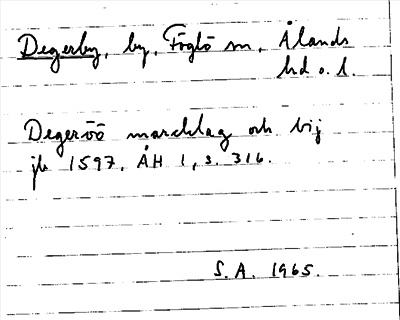 Degerby, by, Föglö sn, Ålands
hd o. l.
Degeröö marcklag och bij
jb 1597, ÅH 1, s. 316.
S. A. 1965.